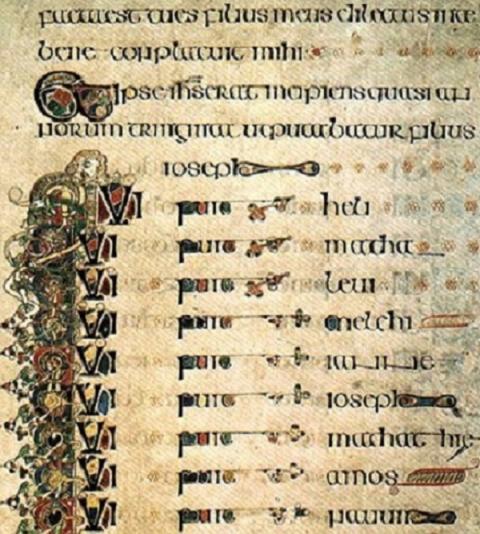 facta est tu es filius meus dilectus in te
bene conplacuit mihi
Et ipse ihs erat incipiens quasi an
norum triginta ut putabatur filius
ioseph
QUI fuit heli
QUI fuit matha
QUI fuit leui
QUI fuit melchi
QUI fuit iannae
QUI fuit ioseph
QUI fuit mathathie
QUI fuit amos
QUI fuit nauum